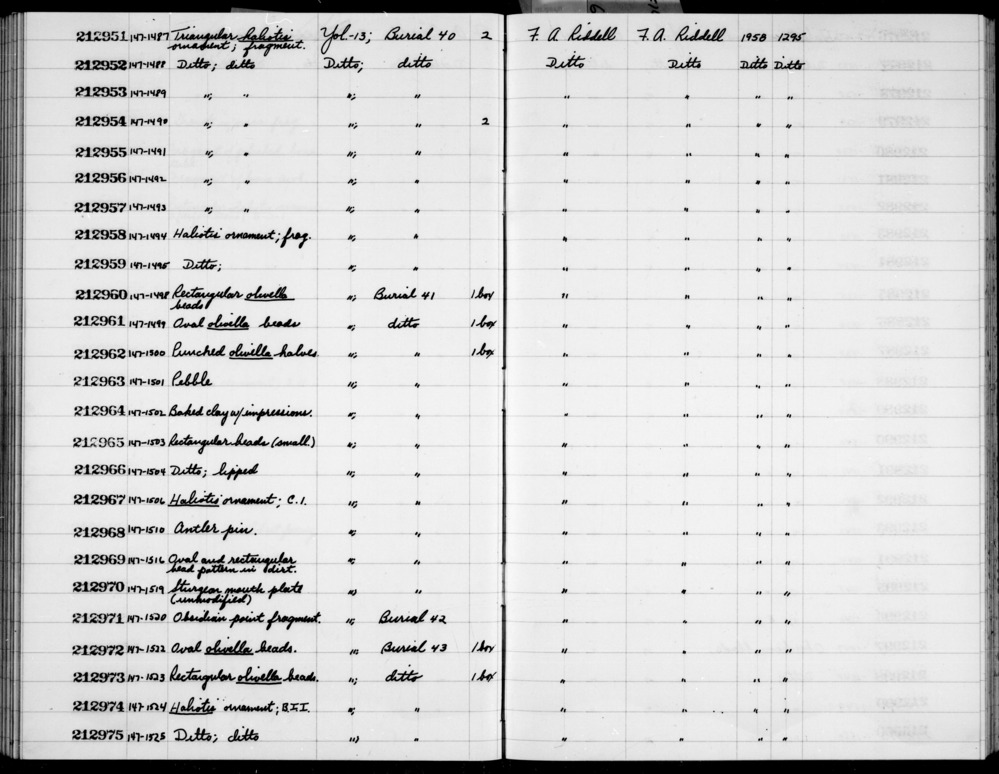 212951 147-1487 Triangular haliotis Yol.-13; Burial 40 2 F. A. Riddell F. A. Riddell 1958 1295
ornament; fragment.
212952 147-1488 Ditto; ditto Ditto; ditto Ditto Ditto Ditto Ditto
212953 147-1489 "; " "; " " " " "
212954 147-1490 "; " "; " 2 " " " "
212955 147-1491 "; " "; " " " " "
212956 147-1492 "; " "; " " " " "
212957 147-1493 "; " "; " " " " "
212958 147-1494 Haliotis ornament; frag. "; " " " " "
212959 147-1495 Ditto; "; " " " " "
212960 147-1498 Rectangular olivella "; Burial 41 1 box " " " "
beads
212961 147-1499 Oval olivella beads "; ditto 1 box " " " "
212962 147-1500 Punched olivella halves. "; " 1 box " " " "
212963 147-1501 Pebble "; " " " " "
212964 147-1502 Baked clay w/ impressions. "; " " " " "
212965 147-1503 Rectangular beads (small.) "; " " " " "
212966 147-1504 Ditto; lipped "; " " " " "
212967 147-1506 Haliotis ornament; C.1. "; " " " " "
212968 147-1510 Antler pin. "; " " " " "
212969 147-1516 Oval and rectangular "; " " " " "
bead pattern in dirt.
212970 147-1519 Sturgeon mouth plate "; " " " " "
(unmodified)
212971 147-1520 Obsidian point fragment. "; Burial 42 " " " "
212972 147-1522 Oval olivella beads. "; Burial 43 1 box " " " "
212973 147-1523 Rectangular olivella beads. "; ditto 1 box " " " "
212974 147-1524 Haliotis ornament; B.I.I. "; " " " " "
212975 147-1525 Ditto; ditto "; " " " " "